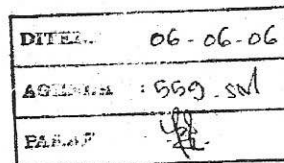 DITER... 06-06-06
AGENDA : 559.SM
PARAF :